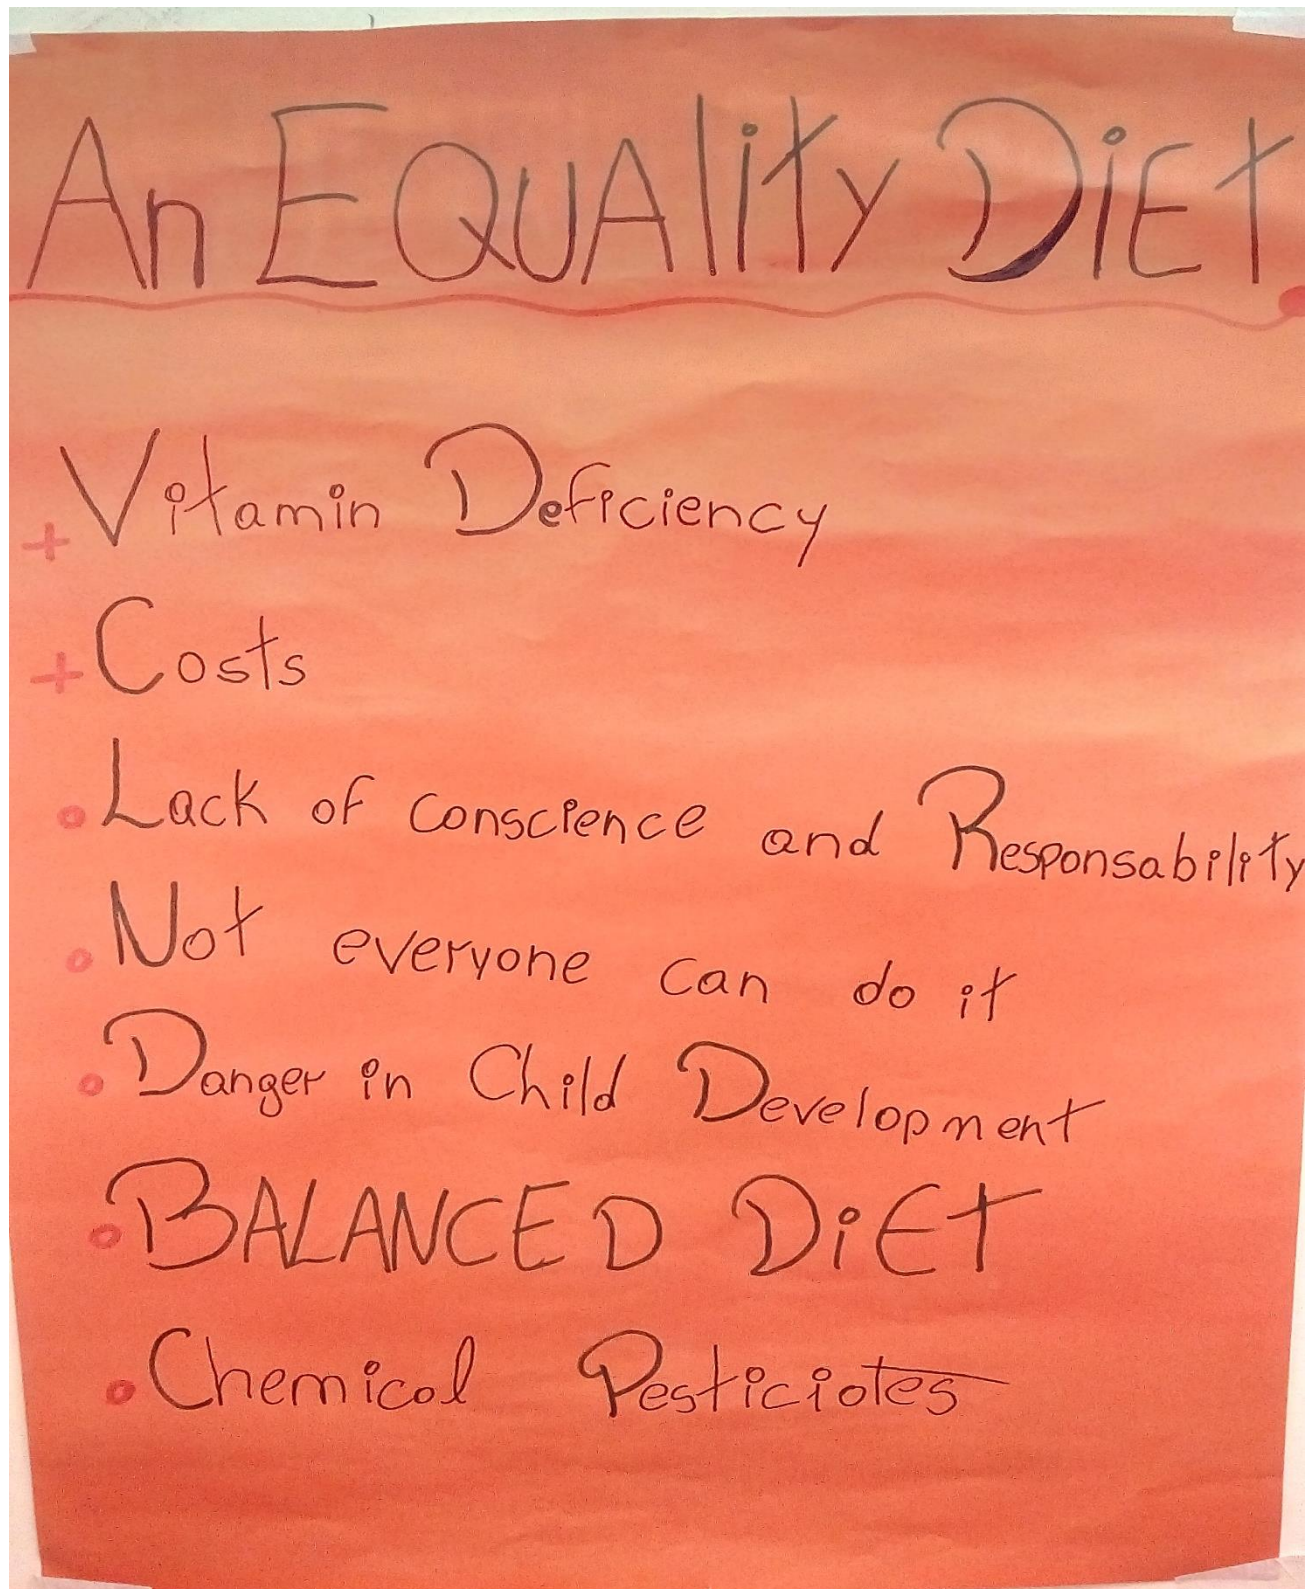 An EQUALity DiEt.
+ Vitamin Deficiency
+ Costs
o Lack of conscience and Responsability
o Not everyone can do it
o Danger in Child Development
o BALANCED DiEt
o Chemical Pesticiotes